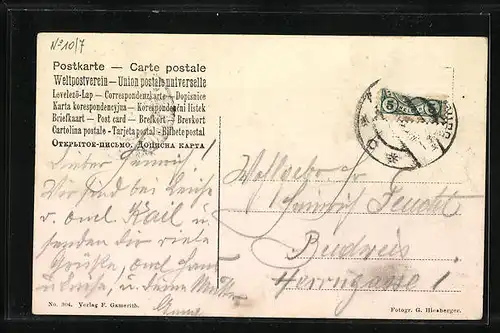 No 10/7
Postkarte — Carte postale
Weltpostverein — Union postale universelle
Levelező-Lap — Correspondenzkarte — Dopisnice
Karta korespondencyjna — Korespondenční lístek
Briefkaart — Post card — Brefkort — Brevkort
Cartolina postale - Tarjeta postal - Bilhete postal
ОТКРЫТОЕ-ПИСЬМО. ДОПИСНА КАРТА
Lieber Heinrich!
Wir sind bei
u. onel Karl u.
senden dir viele
Grüße, onel Hans
u. u. deine Mutter
Anna
5 5
Wohlgeb
Heinrich Feucht
Budweis
Herrngasse 1
No. 304. Verlag F. Gamerith.
Fotogr. G. Hiesberger.